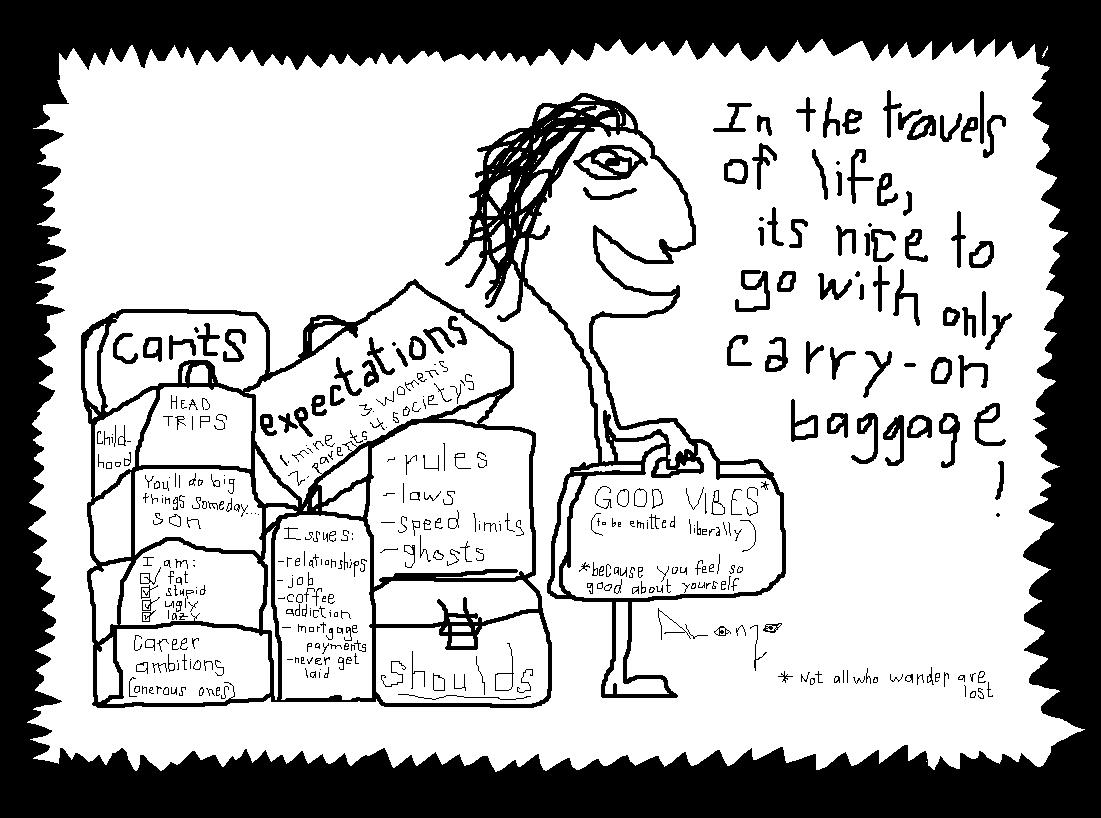 In the travels
of life,
its nice to
go with only
carry-on
baggage
!
can'ts
expectations
1. mine
2. parents
3. women's
4. society's
HEAD
TRIPS
Child-
hood
You'll do big
things someday...
son
I am:
fat
stupid
ugly
lazy
Career
ambitions
(onerous ones)
Issues:
-relationships
-job
-coffee
addiction
-mortgage
payments
-never get
laid
-rules
-laws
-speed limits
-ghosts
shoulds
GOOD VIBES*
(to be emitted liberally)
*because you feel so
good about yourself
* Not all who wander are
lost